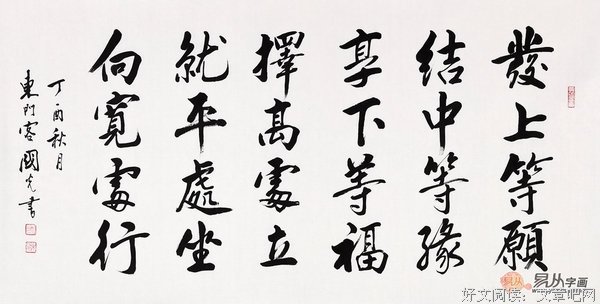 發上等願
結中等緣
享下等福
擇高處立
就平處坐
向寬處行
丁酉秋月
東 客國光書
易从字画
好文阅读：文章吧网